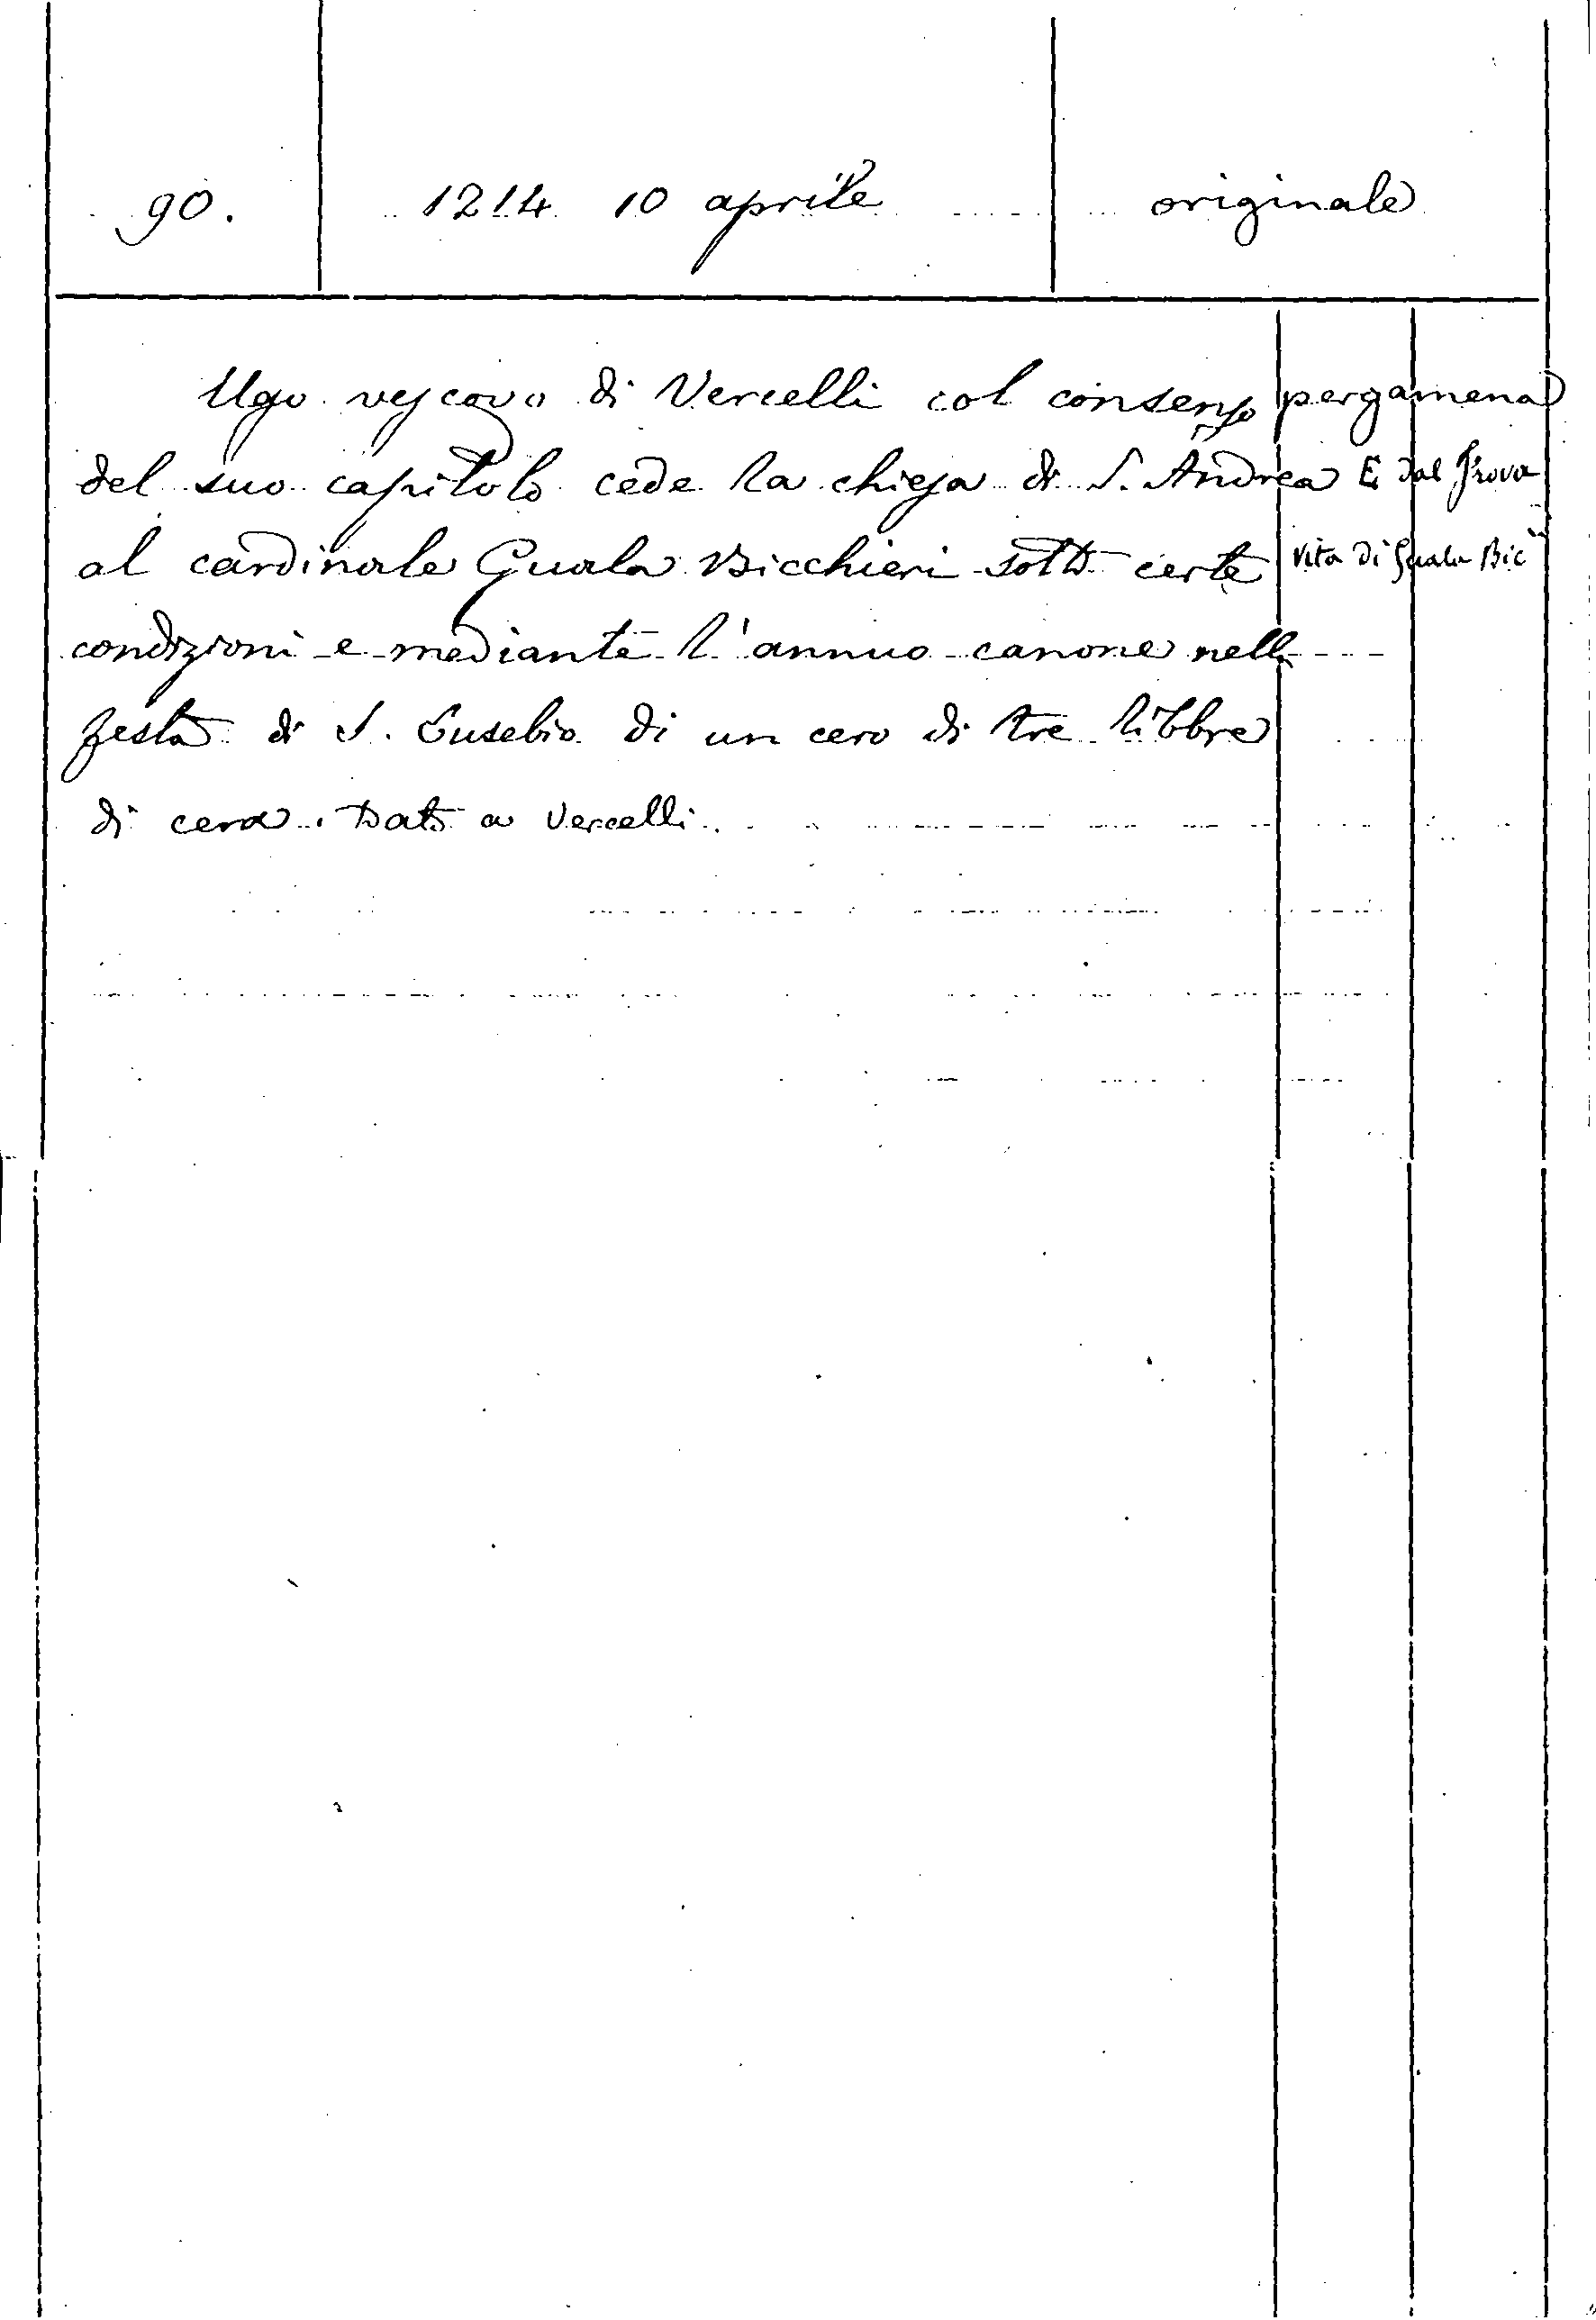 90.
1214 10 aprile
originale
Ugo vescovo di Vercelli col consenso
del suo capitolo cede la chiesa di S. Andrea
al cardinale Guala Bicchieri sotto certe
condizioni e mediante l'annuo canone nella
festa di S. Eusebio di un cero di tre libbre
di cera. Dato a Vercelli.
pergamena
E. dal Frova
Vita di Guala Bic